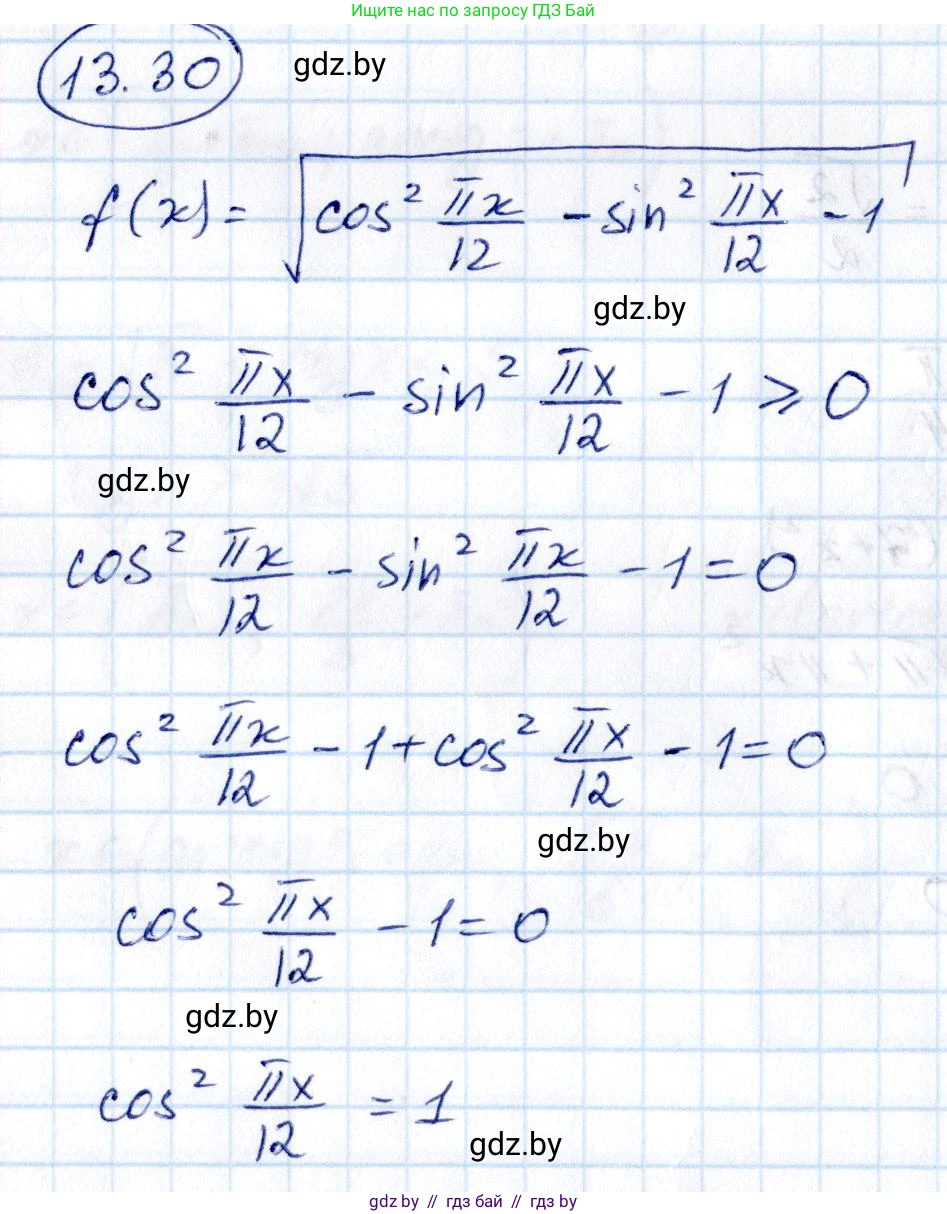 Ищите нас по запросу ГДЗ Бай
13.30 gdz.by
f(x) = √(cos² πx/12 - sin² πx/12 - 1)
gdz.by
cos² πx/12 - sin² πx/12 - 1 ⩾ 0
gdz.by
cos² πx/12 - sin² πx/12 - 1 = 0
cos² πx/12 - 1 + cos² πx/12 - 1 = 0
gdz.by
cos² πx/12 - 1 = 0
gdz.by
cos² πx/12 = 1
gdz.by
gdz.by // гдз бай // гдз by